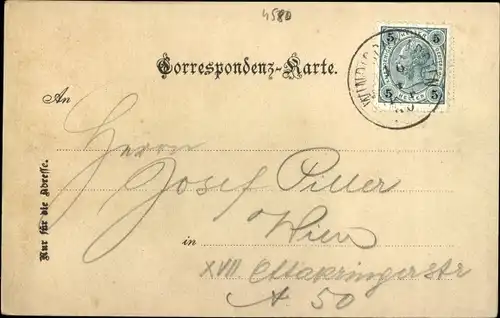 4580
5 5
5 5
WIND
Correspondenz-Karte.
An
Herrn
Josef Piller
in Wien
XVII Ottakringerstr
A 50
Nur für die Adresse.